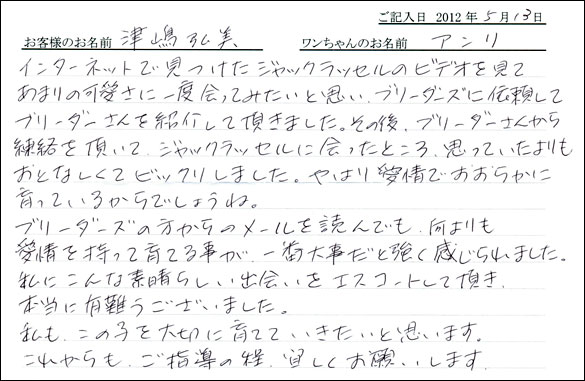 ご記入日 2012年5月13日
お客様のお名前 津嶋弘美 ワンちゃんのお名前 アンリ
インターネットで見つけたジャックラッセルのビデオを見て
あまりの可愛さに一度会ってみたいと思い、ブリーダーズに依頼して
ブリーダーさんを紹介して頂きました。その後、ブリーダーさんから
練絡を頂いて、ジャックラッセルに会ったところ、思っていたよりも
おとなしくてビックリしました。やはり愛情でおおらかに
育っているからでしょうね。
ブリーダーズの方からのメールを読んでも、何よりも
愛情を持って育てる事が、一番大事だと強く感じられました。
私にこんな素晴らしい出会いをエスコートして頂き、
本当に有難うございました。
私も、この子を大切に育てていきたいと思います。
これからも、ご指導の程、宜しくお願いします。